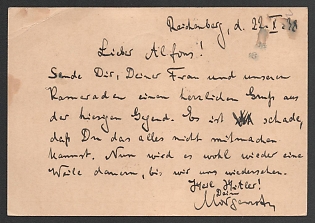 Reichenberg, d. 22. X. 38
Lieber Alfons!
Sende Dir, Deiner Frau und unseren
Kameraden einen herzlichen Gruß aus
der hiesigen Gegend. Es ist schade,
daß Du das alles nicht mitmachen
kannst. Nun wird es wohl wieder eine
Weile dauern, bis wir uns wiedersehen.
Heil Hitler!
Dein